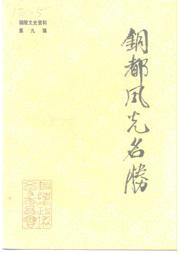 铜陵文史资料
第九辑
銅都风光名勝